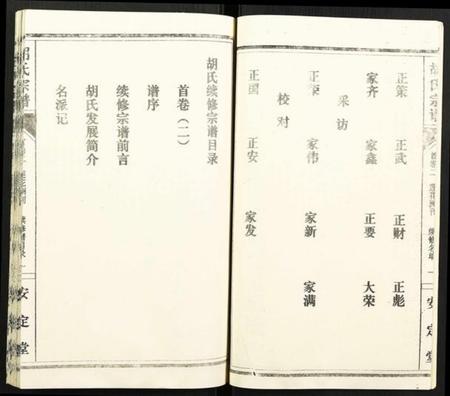 胡氏宗谱
安定堂
正策 正武 正财 正彪
家齐 家鑫 正要 大荣
采访
家伟 家新 家满
校对
正国 正安 家发
胡氏续修宗谱目录
首卷（二）
谱序
续修宗谱前言
胡氏发展简介
名派记
氏宗谱
安定堂